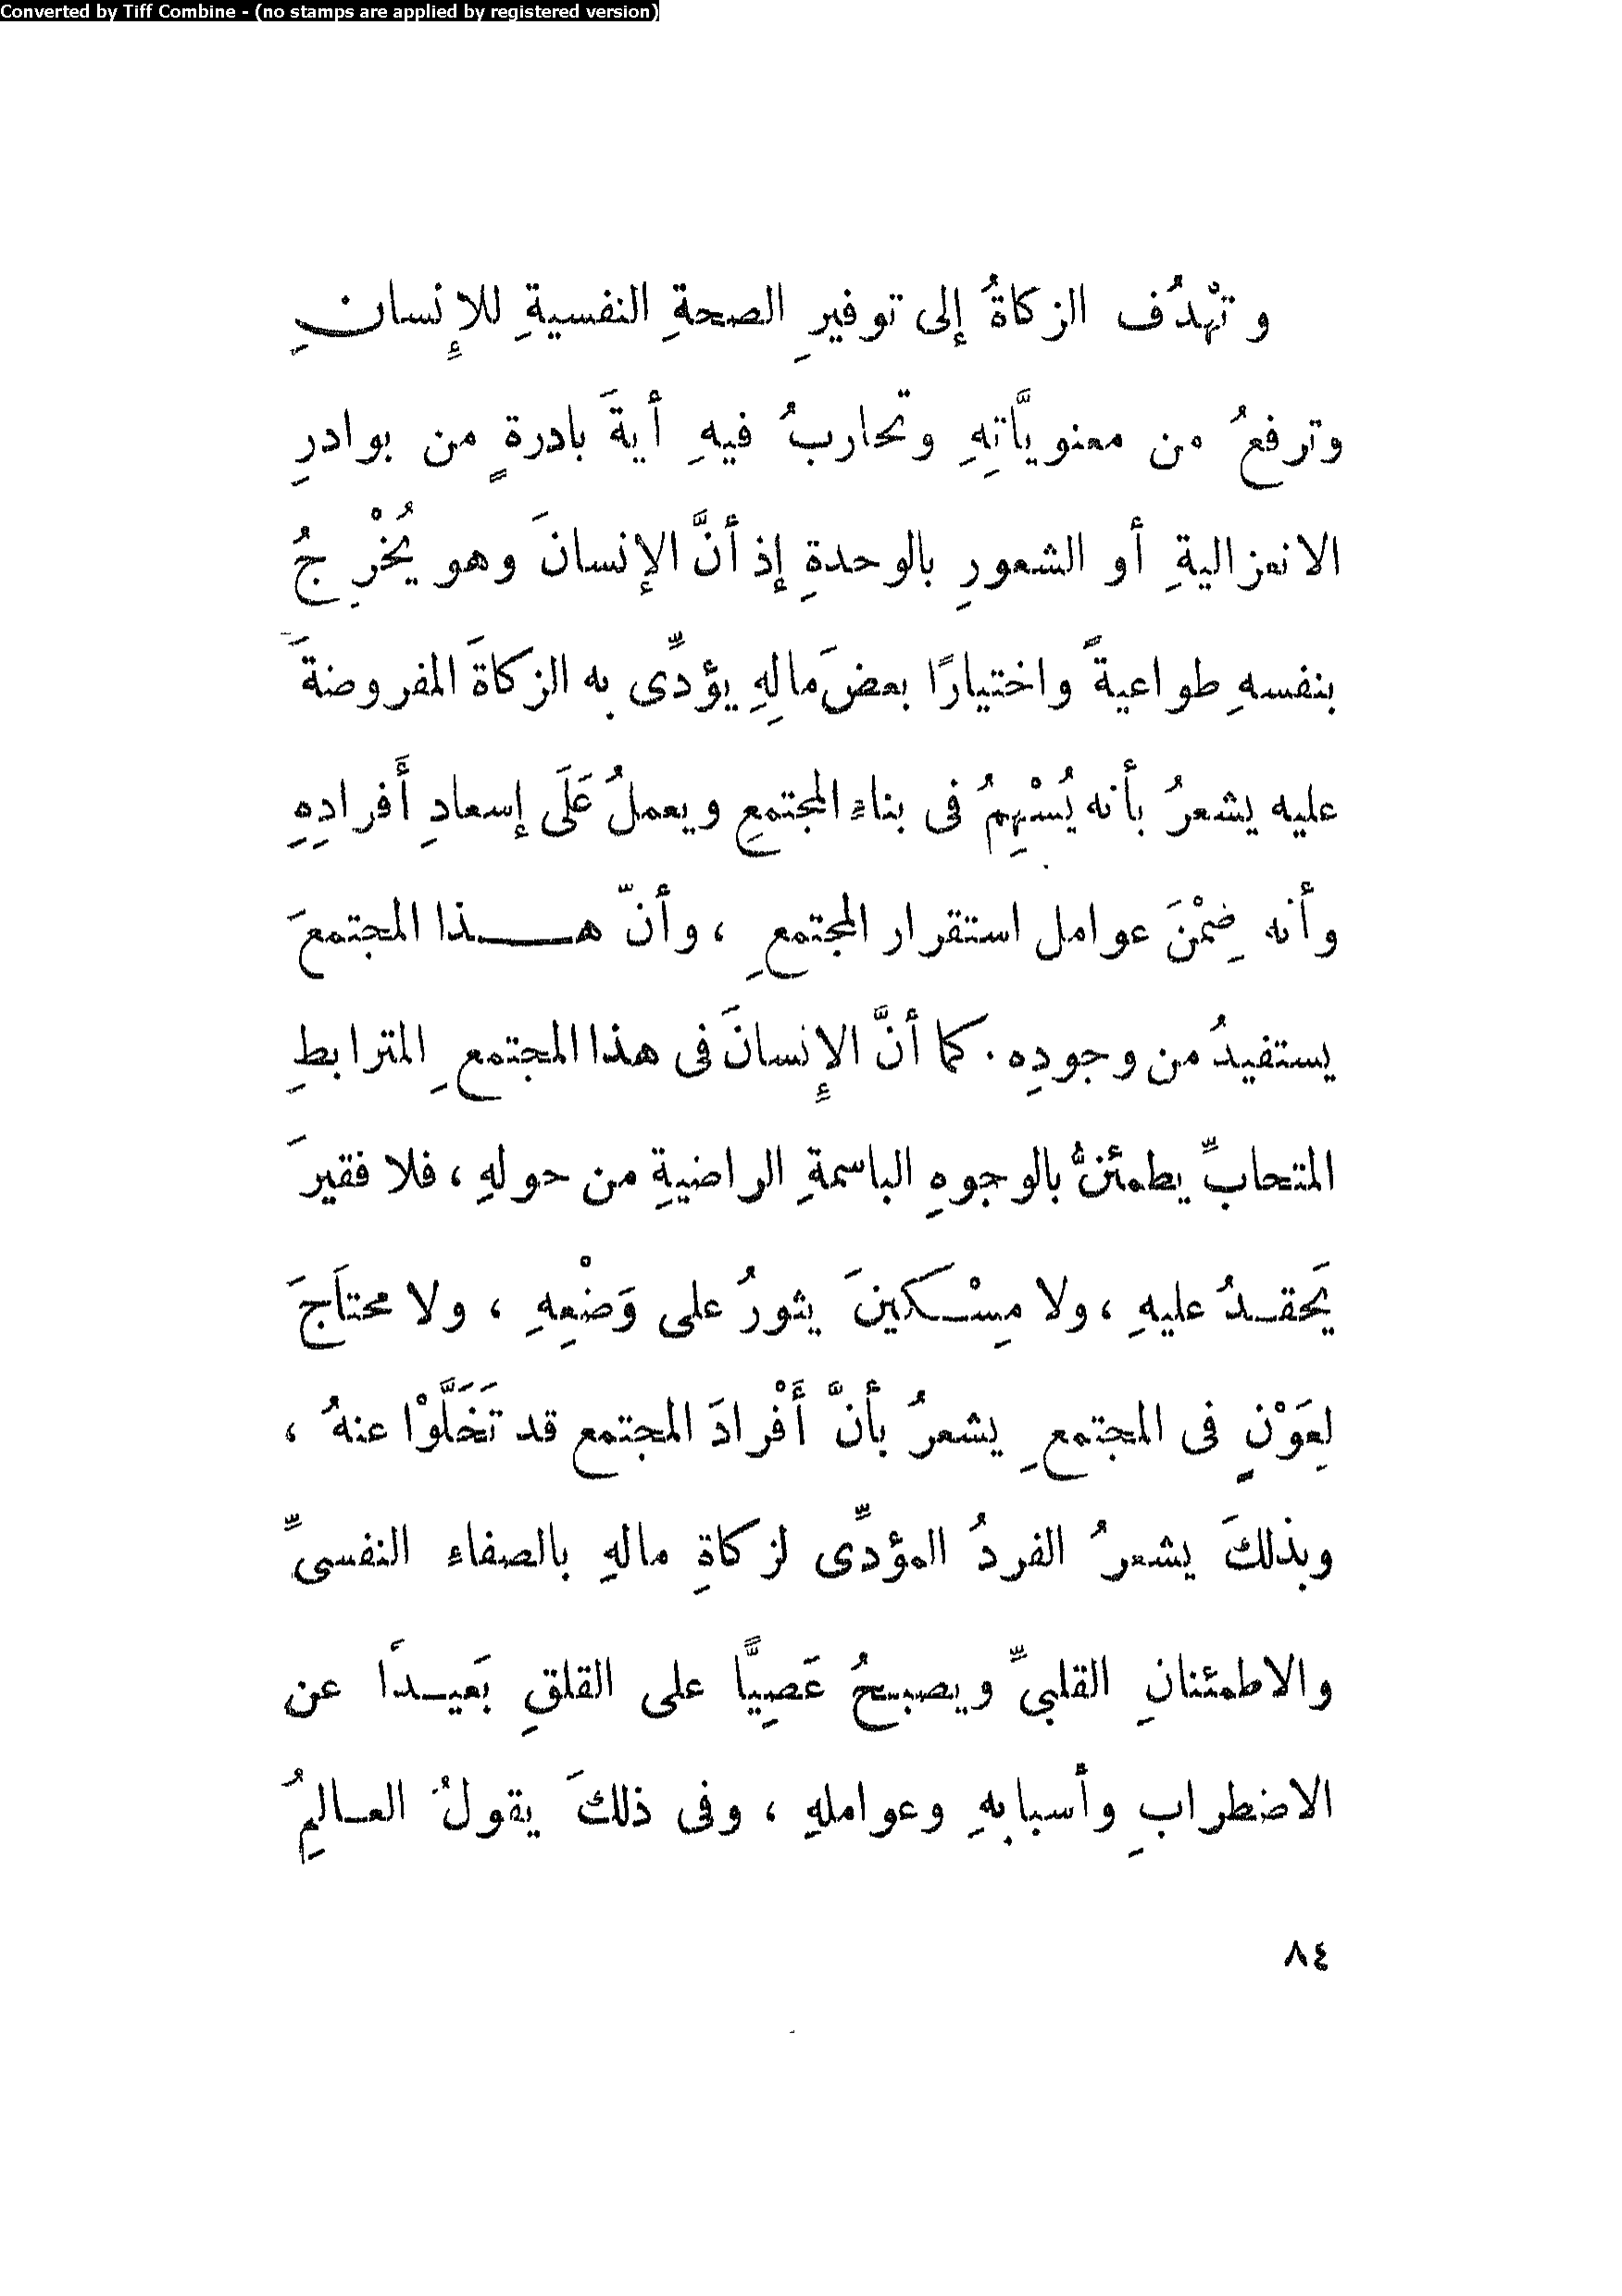 Converted by Tiff Combine - (no stamps are applied by registered version)
وتهْدُف الزكاةُ إلى توفيرِ الصحةِ النفسيةِ للإِنسانِ
وترفعُ من معنويَّاتِهِ وتحاربُ فيهِ أيةَ بادرةٍ من بوادرِ
الانعزاليةِ أو الشعورِ بالوحدةِ إذ أنَّ الإنسانَ وهو يُخْرِجُ
بنفسهِ طواعيةً واختيارًا بعضَ مالِهِ يؤدِّى به الزكاةَ المفروضةَ
عليه يشعرُ بأنه يُسْهِمُ فى بناء المجتمعِ ويعملُ عَلَى إسعادِ أَفرادِهِ
وأنه ضِمْنَ عوامل استقرار المجتمعِ ، وأنّ هـــذا المجتمعَ
يستفيدُ من وجودِه . كما أنَّ الإِنسانَ فى هذا المجتمعِ المترابطِ
المتحابِّ يطمئنُّ بالوجوهِ الباسمةِ الراضيةِ من حولهِ ، فلا فقيرَ
يَحقـدُ عليهِ ، ولا مِسْـكينَ يثورُ على وَضْعِهِ ، ولا محتاَجَ
لِعَوْنٍ فى المجتمعِ يشعرُ بأنَّ أَفْرادَ المجتمع قد تَخَلَّوْا عنهُ ،
وبذلكَ يشعرُ الفردُ المؤدِّى لزكاةِ مالهِ بالصفاء النفسىِّ
والاطمئنانِ القلبىِّ ويصبحُ عَصِيًّا على القلقِ بَعيـدًا عن
الاضطرابِ وأسبابهِ وعواملهِ ، وفى ذلكَ يقولُ العـالِمُ
٨٤